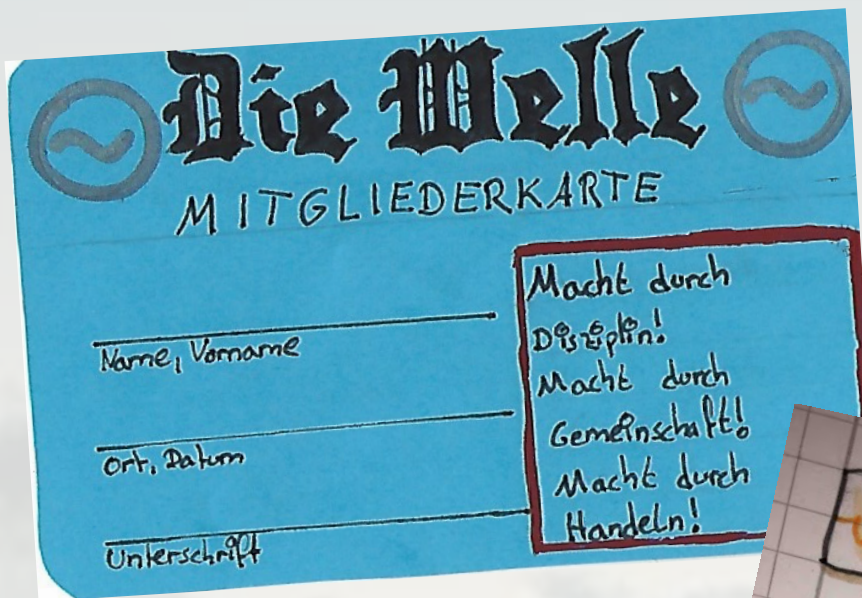 Die Welle
MITGLIEDERKARTE
Name, Vorname
Ort, Datum
Unterschrift
Macht durch
Disziplin!
Macht durch
Gemeinschaft!
Macht durch
Handeln!